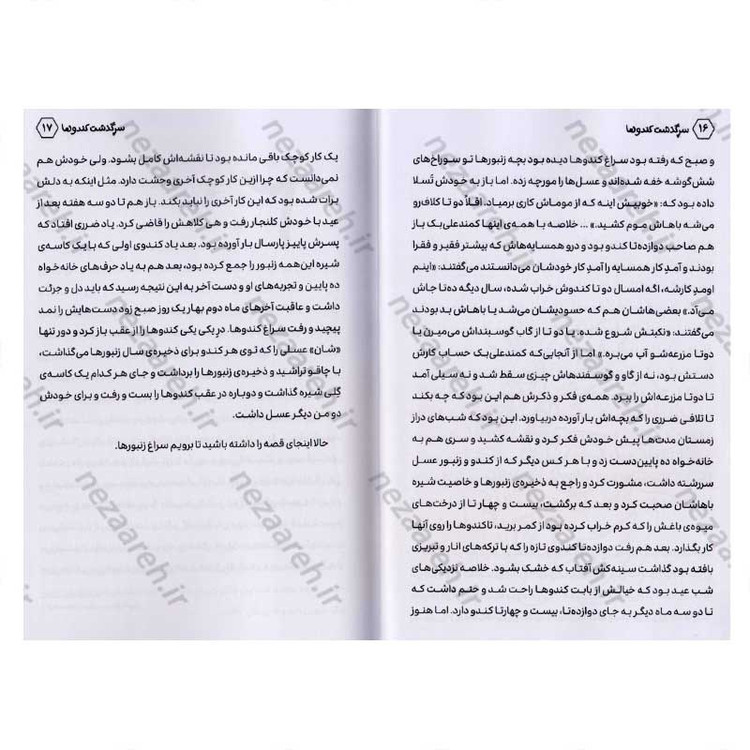 ۱۶ سرگذشت کندوها
و صبح که رفته بود سراغ کندوها دیده بود بچه زنبورها تو سوراخ‌های
شش‌گوشه خفه شده‌اند و عسل‌ها را مورچه زده. اما باز به خودش تسلا
داده بود که: «خوبیش اینه که از موماش کاری برمیاد. اقلاً دو تا کلاف‌رو
می‌شه باهاش موم کشید.» ... خلاصه با همه‌ی اینها کمندعلی‌بک باز
هم صاحب دوازده‌تا کندو بود و درو همسایه‌هاش که بیشتر فقیر و فقرا
بودند و آمدِ کار همسایه را آمدِ کار خودشان می‌دانستند می‌گفتند: «اینم
اومدِ کارشه، اگه امسال دو تا کندوش خراب شده، سال دیگه ده‌تا جاش
می‌آد.» بعضی‌هاشان هم که حسودیشان می‌شد یا باهاش بد بودند
می‌گفتند: «نکبتش شروع شده. یا دو تا از گاب گوسبنداش می‌میرن یا
دوتا مزرعه‌شو آب می‌بره.» اما از آنجایی‌که کمندعلی‌بک حساب کارش
دستش بود، نه از گاو و گوسفندهاش چیزی سقط شد و نه سیلی آمد
تا دوتا مزرعه‌اش را ببرد. همه‌ی فکر و ذکرش هم این بود که چه بکند
تا تلافی ضرری را که بچه‌اش بار آورده دربیاورد. این بود که شب‌های دراز
زمستان مدت‌ها پیش خودش فکر کرد و نقشه کشید و سری هم به
خانه‌خواه ده پایین‌دست زد و با هر کس دیگر که از کندو و زنبور عسل
سررشته داشت، مشورت کرد و راجع به ذخیره‌ی زنبورها و خاصیت شیره
باهاشان صحبت کرد و بعد که برگشت، بیست و چهار تا از درخت‌های
میوه‌ی باغش را که کرم خراب کرده بود از کمر برید، تاکندوها را روی آنها
کار بگذارد. بعد هم رفت دوازده‌تا کندوی تازه را که با ترکه‌های انار و تبریزی
بافته بود گذاشت سینه‌کش آفتاب که خشک بشود. خلاصه نزدیکی‌های
شب عید بود که خیالش از بابت کندوها راحت شد و حتم داشت که
تا دو سه ماه دیگر به جای دوازده‌تا، بیست و چهارتا کندو دارد. اما هنوز
سرگذشت کندوها ۱۷
یک کار کوچک باقی مانده بود تا نقشه‌اش کامل بشود. ولی خودش هم
نمی‌دانست که چرا ازین کار کوچک آخری وحشت دارد. مثل اینکه به دلش
برات شده بود که این کار آخری را نباید بکند. باز هم تا دو سه هفته بعد از
عید با خودش کلنجار رفت و هی کلاهش را قاضی کرد. یاد ضرری افتاد که
پسرش پاییز پارسال بار آورده بود. بعد یاد کندوی اولی که با یک کاسه‌ی
شیره این‌همه زنبور را جمع کرده بود، بعد هم به یاد حرف‌های خانه‌خواه
ده پایین و تجربه‌های او و دست آخر به این نتیجه رسید که باید دل و جرئت
داشت و عاقبت آخرهای ماه دوم بهار یک روز صبح زود دست‌هایش را نمد
پیچید و رفت سراغ کندوها. درِ یکی یکی کندوها را از عقب باز کرد و دور تنها
«شان» عسلی را که توی هر کندو برای ذخیره‌ی سال زنبورها می‌گذاشت،
با چاقو تراشید و ذخیره‌ی زنبورها را برداشت و جای هر کدام یک کاسه‌ی
گِلی شیره گذاشت و دوباره در عقب کندوها را بست و رفت و برای خودش
دو من دیگر عسل داشت.
حالا اینجای قصه را داشته باشید تا برویم سراغ زنبورها.
nezaareh.ir
nezaareh.ir
nezaareh.ir
nezaareh.ir
nezaareh.ir
nezaareh.ir